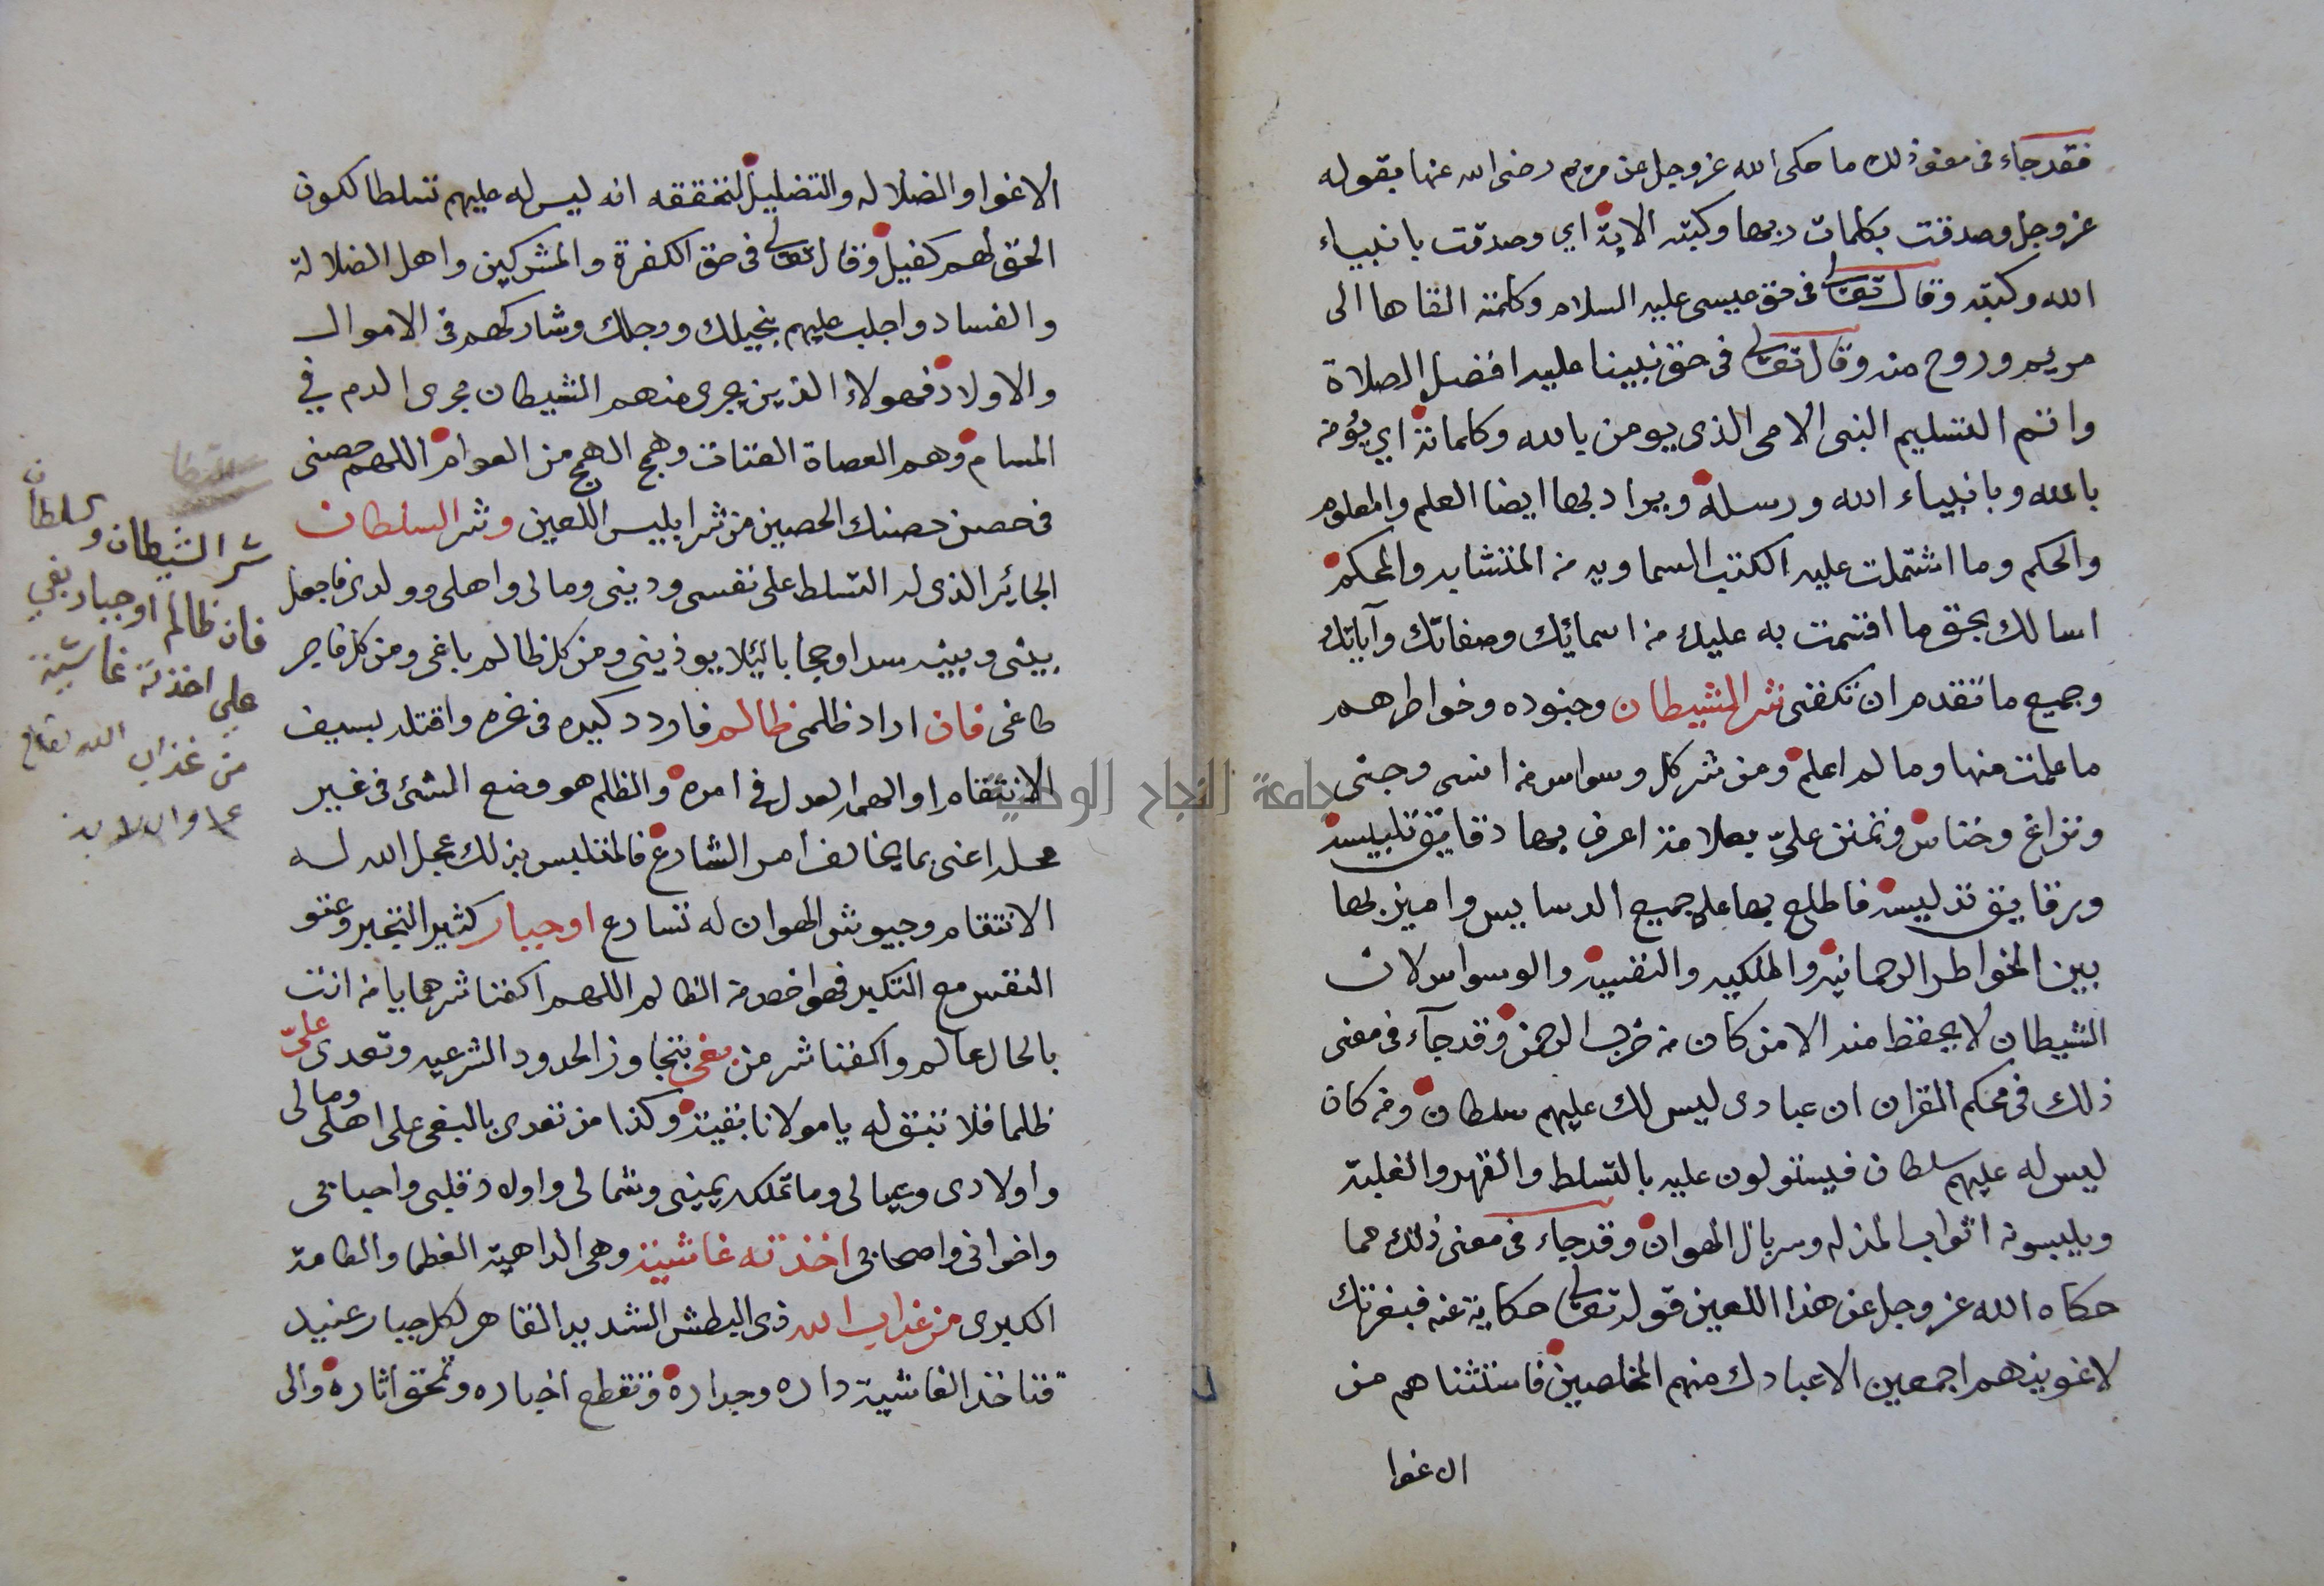 فقد جاء في معنى ذلك ما حكى الله عز وجل عن مريم رضى الله عنها بقوله
عز وجل وصدقت بكلمات ربها وكتبه الاية اي وصدقت بانبياء
الله وكتبه وقال تعالى في حق عيسى عليه السلام وكلمته القاها الى
مريم وروح منه وقال تعالى في حق نبينا عليه افضل الصلاة
واتم التسليم النبى الامى الذى يومن بالله وكلماته اي يؤمن
بالله وبانبياء الله ورسله ويراد بها ايضا العلم والمعلوم
والحكم وما اشتملت عليه الكتب السماويه من المتشابه والمحكم
اسالك بحق ما اقسمت به عليك من اسمائك وصفاتك وآياتك
وجميع ما تقدم ان تكفنى شر الشيطان وجنوده وخواطرهم
ما علمت منها وما لم اعلم ومن شر كل وسواس من انسى وجنى
ونزاغ وخناس وتمنن علىّ بعلامة اعرف بها دقايق تلبيسه
ورقايق تدليسه فاطلع بها على جميع الدسايس واميز بها
بين الخواطر الرحمانيه والملكيه والنفسيه والوسواس لان
الشيطان لا يحفظ منه الا من كان من حزب الرحمن وقد جآء في معنى
ذلك في محكم القران ان عبادى ليس لك عليهم سلطان ومن كان
ليس له عليهم سلطان فيستولون عليه بالتسلط والقهر والغلبة
ويلبسونه اثواب المذله وسربال الهوان وقد جاء في معنى ذلك مما
حكاه الله عز وجل عن هذا اللعين قوله تعالى حكاية عنه فبعزتك
لاغوينهم اجمعين الا عبادك منهم المخلصين فاستثناهم من
الاغوا
الاغوا والضلاله والتضليل لتحققه انه ليس له عليهم تسلطا لكون
الحق لهم كفيل وقال تعالى في حق الكفرة والمشركين واهل الضلالة
والفساد واجلب عليهم بخيلك ورجلك وشاركهم في الاموال
والاولاد فهولاء الذين يجرى منهم الشيطان مجرى الدم في
المسام وهم العصاة العتات وهمج الهمج من العوام اللهم حصنى
في حصن حصنك الحصين من شر ابليس اللعين وشر السلطان
الجائر الذى له التسلط على نفسى ودينى ومالى واهلى وولدى فاجعل
بينى وبينه سدا وحجابا لئلا يوذينى ومن كل ظالم باغى ومن كل فاجر
طاغى فان اراد ظلمى ظالم فاردد كيده في نحره واقتله بسيف
الانتقام او الهمه العدل في امره والظلم هو وضع الشئ في غير
محله اعنى بما يخالف امر الشارع فالمتلبس بذلك عجل الله له
الانتقام وجيوش الهوان له تسارع او جبار كثير التجبر وعتو
النفس مع التكبر فهو اخص من الظالم اللهم اكفنا شرهما يا من انت
بالحال عالم واكفنا شر من بغى بتجاوز الحدود الشرعيه وتعدى علىّ
ظلما فلا تبق له يا مولانا بقية وكذا من تعدى بالبغى على اهلى ومالى
واولادى وعيالى وما تملكه يمينى وشمالى واولاد قلبى واحبابى
واخوانى واصحابى اخذته غاشية وهى الداهية العظما والطامة
الكبرى من عذاب الله ذى البطش الشديد القاهر لكل جبار عنيد
فتاخذ الغاشية داره وجداره وتقطع اخباره وتمحق اثاره والى
شر الشيطان والسلطان
فان ظالم او جبار بغي
علي اخذته غاشية
من عذاب الله تعالى
جامعة النجاح الوطنية